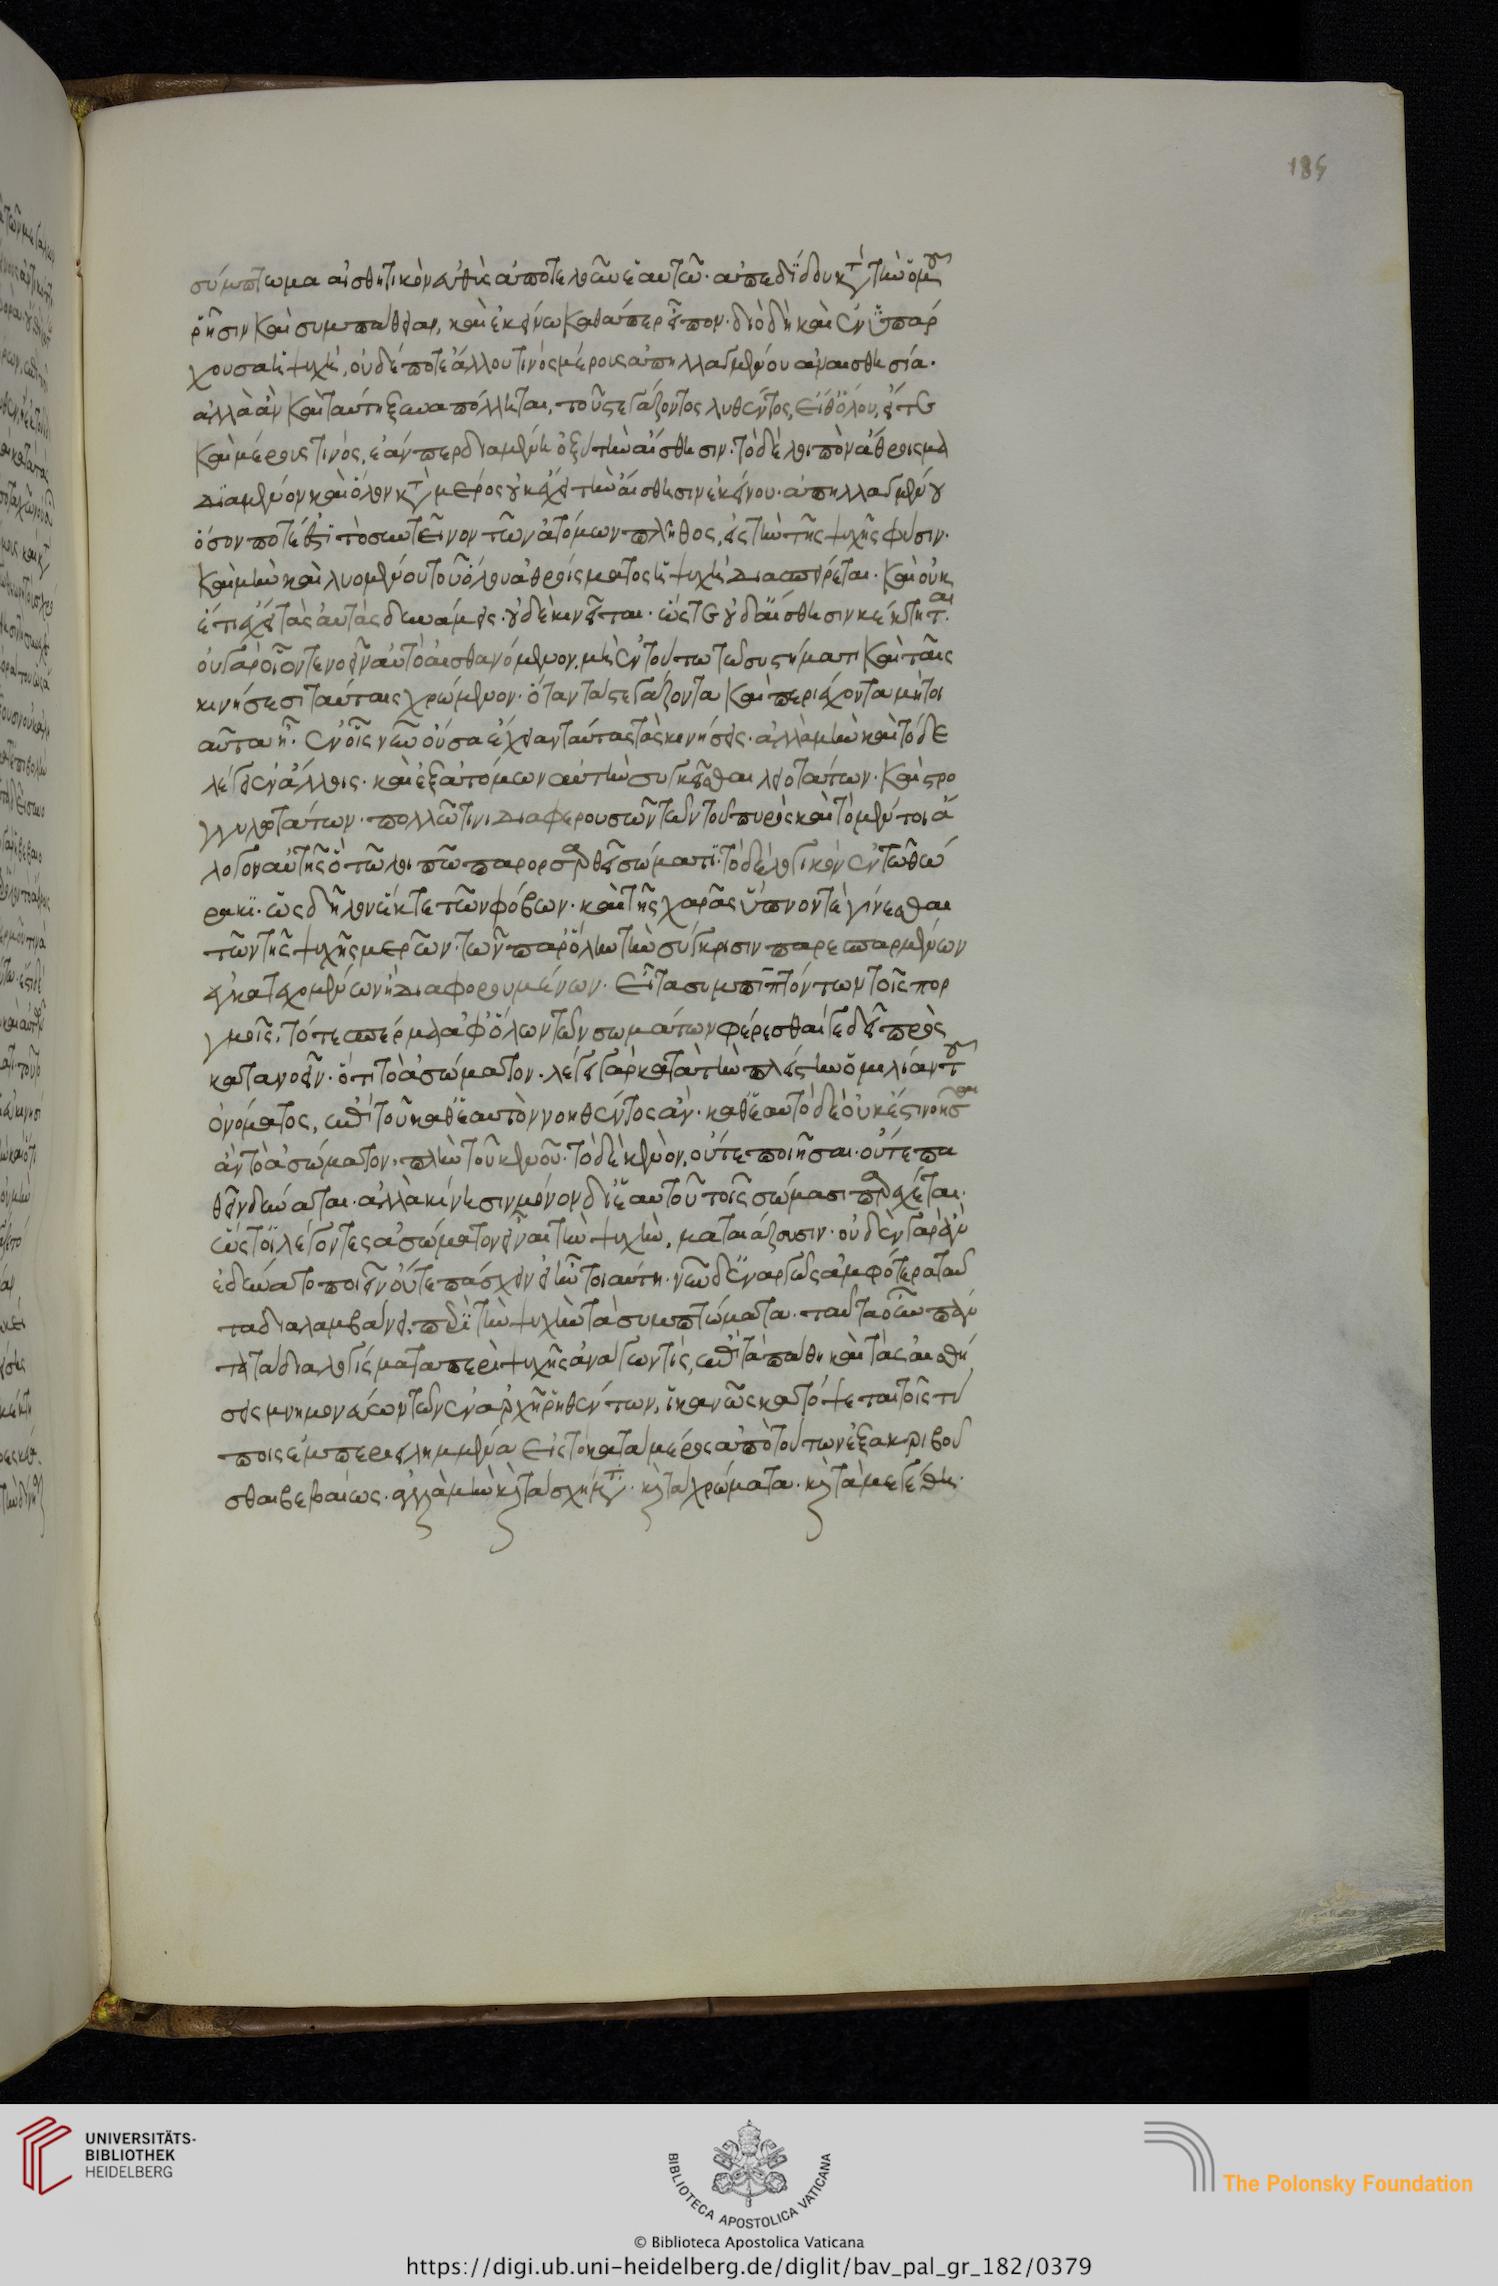 185
σύμπτωμα αἰσθητικὸν εὐθὺς ἀποτελοῦν ἑαυτῶ· ἀπεδίδου κτ τὴν ὁμού
ρησιν καὶ συμπάθειαν, καὶ ἐκείνω καθάπερ εἶπον· διὸ δὴ καὶ ἐνυπάρ
χουσα ἡ ψυχὴ, οὐδέποτε ἄλλου τινὸς μέρους ἀπηλλαγμένου ἀναισθησία·
ἀλλὰ ἂν καὶ ταύτη ξυναπόλληται, τοῦ στεγάζοντος λυθέντος, εἴθ' ὅλου, εἴτε
καὶ μέρους τινὸς, ἐάνπερ διαμένη ὀξὺ τὴν αἴσθησιν· τὸ δὲ λοιπὸν ἄθροισμα
διαμένον καὶ ὅλον κτ μέρος οὐκ ἔχει τὴν αἴσθησιν ἐκείνου· ἀπηλλαγμένου
ὅσον ποτέ ἐστι τὸ συντεῖνον τῶν ἀτόμων πλῆθος, εἰς τὴν τῆς ψυχῆς φύσιν·
καὶ μὴν καὶ λυομένου τοῦ ὅλου ἀθροίσματος ἡ ψυχὴ διασπείρεται· καὶ οὐκ
ἔτι ἔχει τὰς αὐτὰς δυνάμεις· οὐδὲ κινεῖται· ὥστε οὐδ' αἴσθησιν κέκτηται·
οὐ γὰρ οἷόν τε νοεῖν αὐτὸ αἰσθανόμενον, μὴ ἐν τούτω τῶ συστήματι καὶ ταῖς
κινήσεσι ταύταις χρώμενον· ὅταν τὰ στεγάζοντα καὶ περιέχοντα μὴ τοι
αῦτα ἦ· ἐν οἷς νῦν οὖσα ἔχει ταύτας τὰς κινήσεις· ἀλλὰ μὴν καὶ τόδε
λέγει ἐν ἄλλοις· καὶ ἐξ ἀτόμων αὐτὴν συγκεῖσθαι λειοτάτων· καὶ στρο
γγυλοτάτων· πολλῶ τινι διαφερουσῶν τῶν τοῦ πυρὸς καὶ τὸ μέν τοι ἄ
λογον αὐτῆς ὃ τῶ λοιπῶ παρορσπαρθεῖ σώματι· τὸ δὲ λογικὸν ἐν τῶ θώ
ρακι· ὡς δῆλον ἔκ τε τῶν φόβων· καὶ τῆς χαρᾶς ὕπνον τὲ γίνεσθαι
τῶν τῆς ψυχῆς μερῶν· τῶν παρ' ὅλην τὴν σύγκρισιν παρεσπαρμένων
ἐγκατεχομένων ἢ διαφορουμένων· εἶτα συμπιπτόντων τοῖς πορ
γμοῖς, τό τε σπέρμα ἀφ' ὅλων τῶν σωμάτων φέρεσθαί γε δεῖ προς
κατανοεῖν· ὅτι τὸ ἀσώματον· λέγει γὰρ κατὰ τὴν πλείστην ὁμιλίαν τοῦ
ὀνόματος, ἐπὶ τοῦ καθ' ἑαυτὸν νοηθέντος ἄν· καθ' ἑαυτὸ δὲ οὐκ ἔστι νοῆσαι
ἂν τὸ ἀσώματον, πλὴν τοῦ κενοῦ· τὸ δὲ κενὸν, οὔτε ποιῆσαι οὔτε πα
θεῖν δύναται· ἀλλὰ κίνησιν μόνον δι' ἑαυτοῦ τοῖς σώμασι παρέχεται·
ὥστ' οἱ λέγοντες ἀσώματον εἶναι τὴν ψυχὴν, ματαιάζουσιν· οὐδὲν γὰρ ἂν
ἐδύνατο ποιεῖν οὔτε πάσχειν εἰ ἦν τοιαύτη· νῦν δ' ἐναργῶς ἀμφότερα ταῦ
τα διαλαμβάνει, περὶ τὴν ψυχὴν τὰ συμπτώματα· ταῦτα οὖν πάν
τα τὰ διαλογίσματα περὶ ψυχῆς ἀνάγων τις, ἐπὶ τὰ πάθη καὶ τὰς αἰσθή
σεις μνημονεύων τῶν ἐν ἀρχῆ ῥηθέντων, ἱκανῶς κατόψεται τοῖς τύ
ποις ἐμπεριειλημμένα εἰς τὸ κατὰ μέρος ἀπὸ τούτων ἐξακριβοῦ
σθαι βεβαίως· ἀλλὰ μὴν κ τὰ σχήμτ· κ τὰ χρώματα· κ τὰ μεγέθη·
UNIVERSITÄTS-
BIBLIOTHEK
HEIDELBERG
BIBLIOTECA APOSTOLICA VATICANA
The Polonsky Foundation
© Biblioteca Apostolica Vaticana
https://digi.ub.uni-heidelberg.de/diglit/bav_pal_gr_182/0379